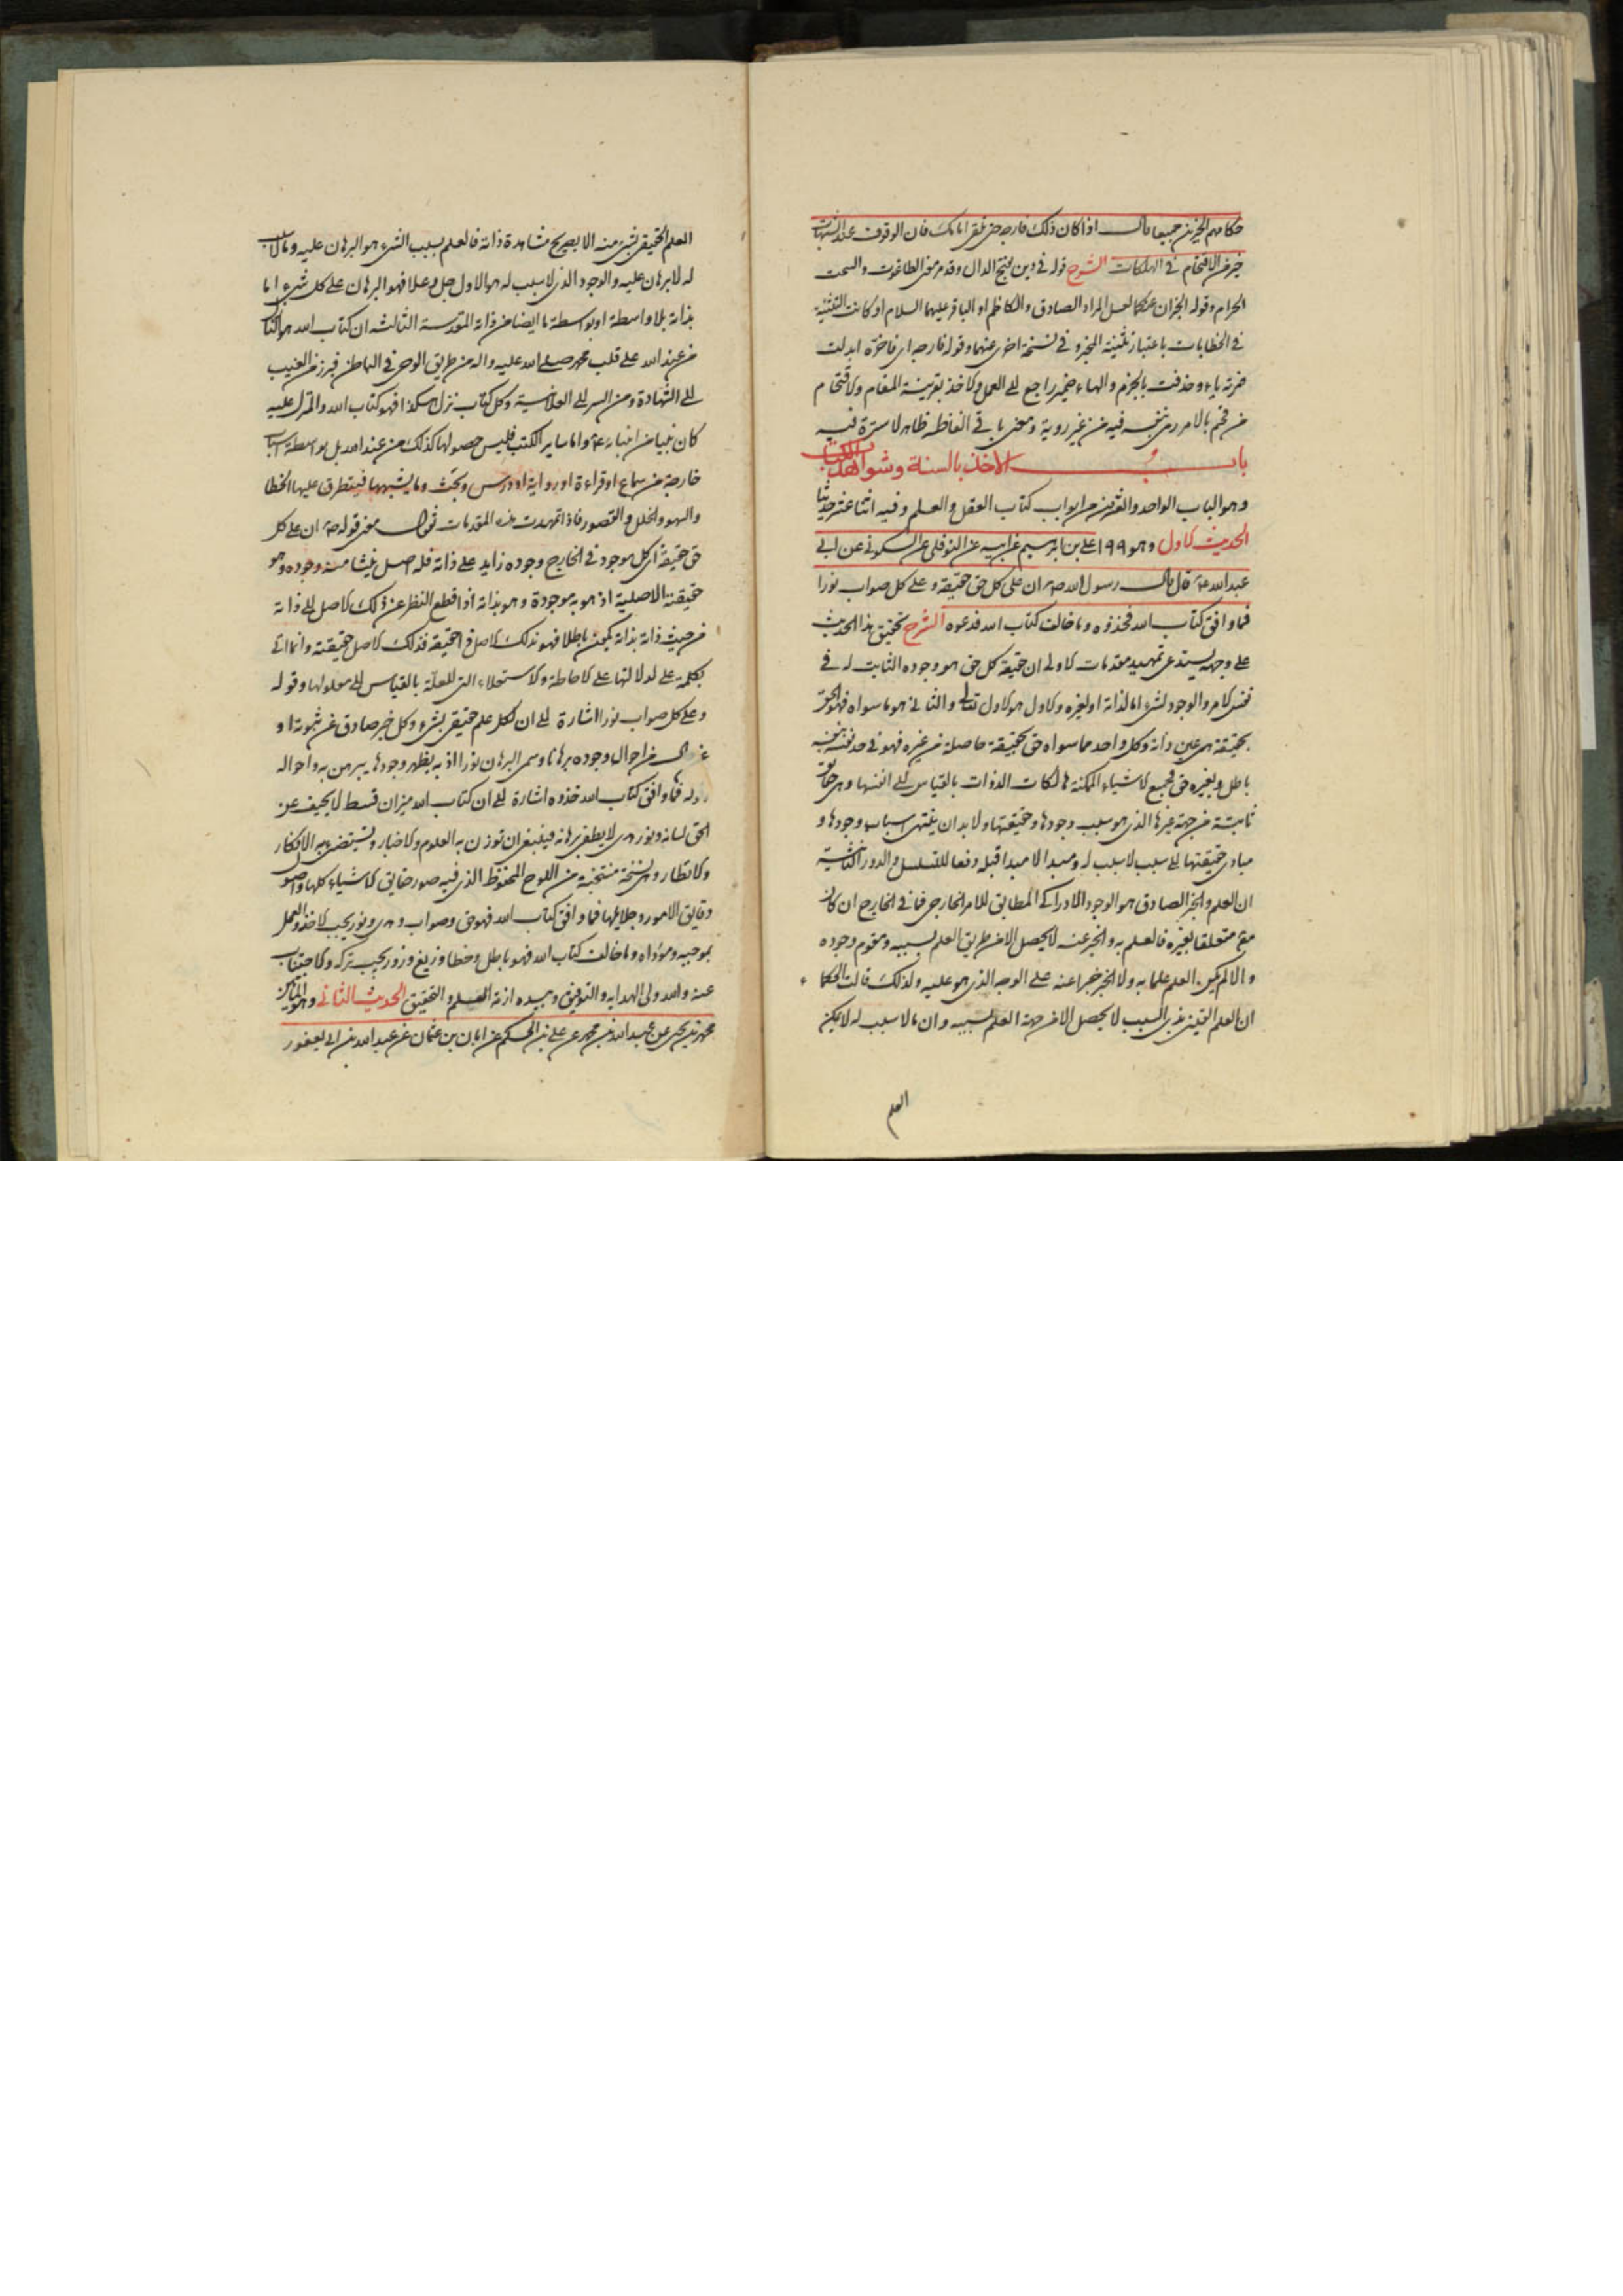 حكامهم الخبرين جميعا قال اذا كان ذلك فارجه حتى تلقى امامك فان الوقوف عند الشبهات
خير من الاقتحام في الهلكات الشرح قوله في دين بفتح الدال وقد مر معنى الطاغوت والسحت
الحرام وقوله الخبران عنكما لعل المراد الصادق والكاظم او الباقر عليهما السلام او كانت التثنية
في الخطابات باعتبار تثنية المخبر وفي نسخة اخرى عنهما وقوله فارجه اى فاخره ابدلت
همزته ياء وحذفت بالجزم والهاء ضمير راجع الى العمل والاخذ بقرينة المقام والاقتحام
من قحم بالامر رمى بنفسه فيه من غير روية ومعنى باقي الفاظه ظاهر لا سترة فيه
باب الاخذ بالسنة وشواهد الكتاب
وهو الباب الواحد والعشرين من ابواب كتاب العقل والعلم وفيه اثنا عشر حديثا
الحديث الاول وهو ١٩٩ على بن ابرهيم عن ابيه عن النوفلى عن السكونى عن ابى
عبد الله ع قال قال رسول الله ص ان على كل حق حقيقة وعلى كل صواب نورا
فما وافق كتاب الله فخذوه وما خالف كتاب الله فدعوه الشرح تحقيق هذا الحديث
على وجهه يستدعى تمهيد مقدمات الاولى ان حقيقة كل حق هو وجوده الثابت له في
نفس الامر والوجود لشىء اما لذاته او لغيره والاول هو الاول تعالى والثانى هو ما سواه فهو الحق
بحقيقة هى عين ذاته وكل واحد مما سواه حق بحقيقة حاصلة من غيره فهو في حد نفسه
باطل وبغيره حق فجميع الاشياء الممكنة هالكات الذوات بالقياس الى انفسها وهى حقائق
ثابتة من جهة غيرها الذى هو سبب وجودها وحقيقتها ولا بد ان ينتهى اسباب وجودها و
مبادى حقيقتها الى سبب لا سبب له ومبدا لا مبدا قبله دفعا للتسلسل والدور الثانية
ان العلم والخبر الصادق هو الوجود الادراكى المطابق للامر الخارجى فما في الخارج ان كان
متعلقا بغيره فالعلم به والخبر عنه لا يحصل الا من طريق العلم بسببه ومقوم وجوده
والا لم يكن العلم علما به ولا الخبر خبرا عنه على الوجه الذى هو عليه ولذلك قالت الحكماء
ان العلم اليقينى بذى السبب لا يحصل الا من جهة العلم بسببه وان ما لا سبب له لا يمكن
العلم
العلم الحقيقى بشىء منه الا بصريح مشاهدة ذاته فالعلم بسبب الشىء هو البرهان عليه وما لا سبب
له لا برهان عليه والوجود الذى لا سبب له هو الاول جل وعلا فهو البرهان على كل شىء اما
بذاته بلا واسطة او بواسطة ما ايضا من ذاته المقدسة الثالثة ان كتاب الله هو الكتاب
من عند الله على قلب محمد صلى الله عليه واله من طريق الوحى في الباطن فبرز من الغيب
الى الشهادة ومن السر الى العلانية وكل كتاب نزل هكذا فهو كتاب الله والمنزل عليه
كان نبيا من انبيائه ع واما ساير الكتب فليس حصولها كذلك من عند الله بل بواسطة اسباب
خارجة من سماع او قراءة او رواية او درس وبحث وما يشبهها فيتطرق عليها الخطا
والسهو والخلل والقصور فاذا تمهدت هذه المقدمات فنقول معنى قوله ص ان على كل
حق حقيقة اى كل موجود في الخارج وجوده زايد على ذاته فله اصل ينشا منه وجوده وهو
حقيقته الاصلية اذ هو به موجودة وهو بذاته اذا قطع النظر عن ذلك الاصل الى ذاته
من حيث ذاته بذاته يكون باطلا فهو بذلك الاصل في الحقيقة فذلك الاصل حقيقته وانما اتى
بكلمة على لدلالتها على الاحاطة والاستعلاء التى للعلة بالقياس الى معلولها وقوله
وعلى كل صواب نورا اشارة الى ان لكل علم حقيقى بشىء وكل خبر صادق عن ثبوته او
عن حال من احوال وجوده برهانا وسمى البرهان نورا اذ به يظهر وجود ما يبرهن به واحواله
وقوله فما وافق كتاب الله خذوه اشارة الى ان كتاب الله ميزان قسط لا يحيف عن
الحق لسانه ونور هدى لا يطفى برهانه فينبغى ان توزن به العلوم والاخبار وتستضىء به الافكار
والانظار وهى نسخة منتخبة من اللوح المحفوظ الذى فيه صور حقايق الاشياء كلها واصول
دقايق الامور وجلايلها فما وافق كتاب الله فهو حق وصواب وهدى ونور يجب الاخذ والعمل
بموجبه ومؤداه وما خالف كتاب الله فهو باطل وخطا وزيغ وزور يجب تركه والاجتناب
عنه والله ولى الهداية والتوفيق وبيده ازمة العلم والتحقيق الحديث الثانى وهو المأتين
محمد بن يحيى عن عبد الله بن محمد عن على بن الحكم عن ابان بن عثمان عن عبد الله بن ابى يعفور